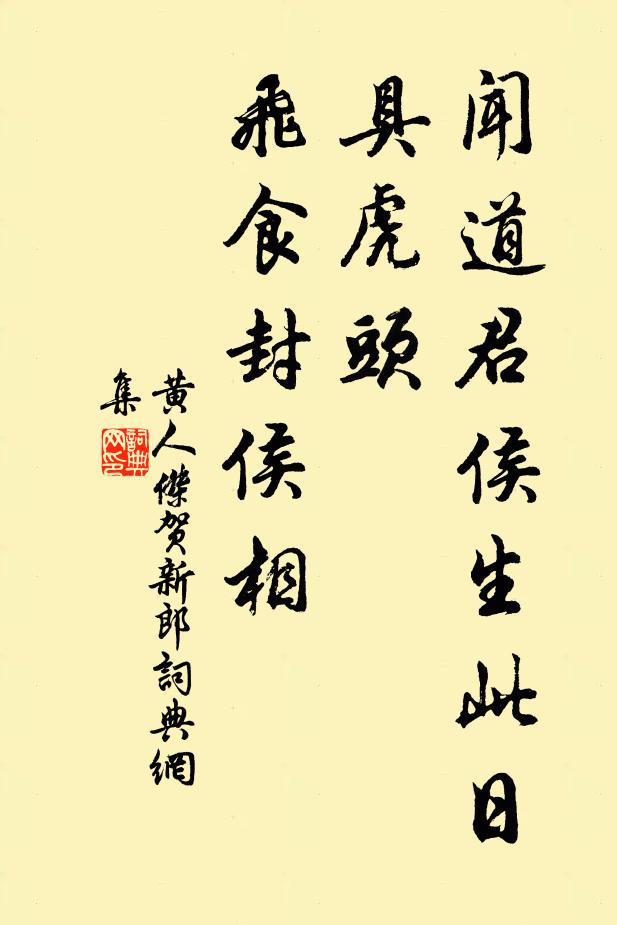 聞道君侯生此日
具虎頭
飛食封侯相
黄人傑賀新郎詞典網
集
詞典
网印